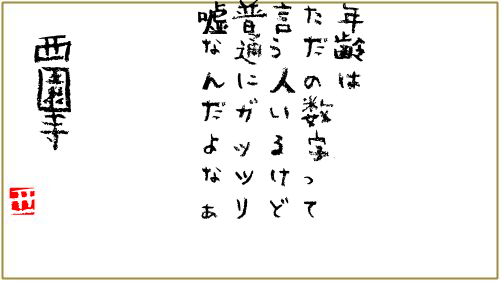 年齢は
ただの数字って
言う人いるけど
普通にガッツリ
嘘なんだよなぁ
西園寺